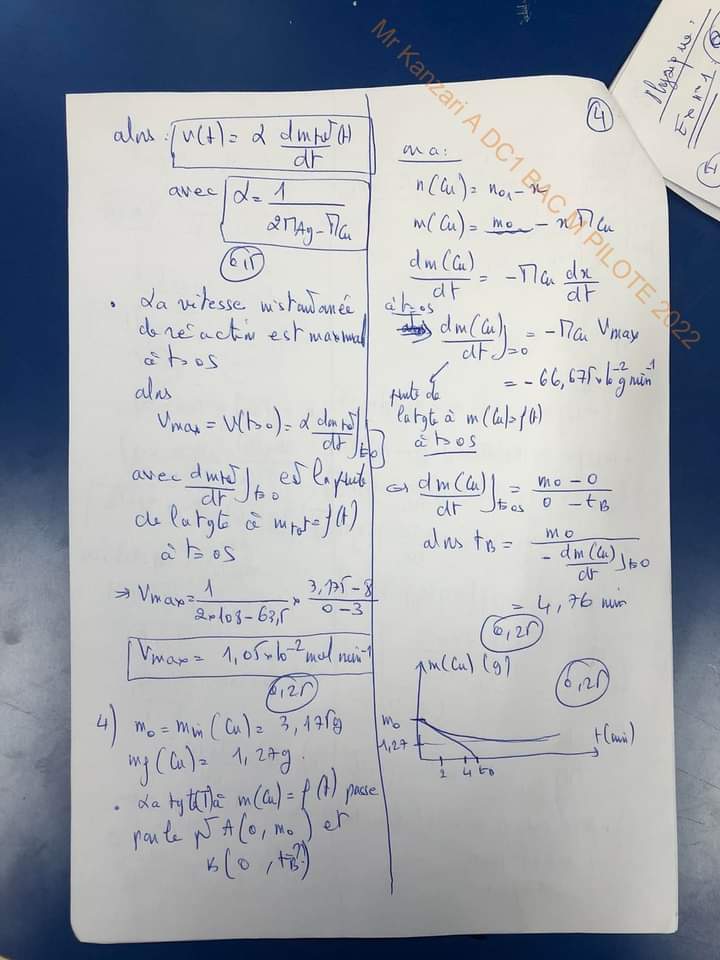 alors : v(t) = α dm_tot(t)/dt
avec α = 1/(2M_Ag - M_Cu)
0,5
• La vitesse instantanée
de réaction est maximal
à t=0s
alors
V_max = V(t=0) = α dm_tot/dt]_t=0
avec dm_tot/dt]_t=0 est la pente
de la tgte à m_tot = f(t)
à t=0s
⇒ V_max = 1/(2×108-63,5) × (3,175-8)/(0-3)
V_max = 1,05×10^-2 mol min^-1
0,25
4) m_0 = m_in (Cu) = 3,175g
m_f (Cu) = 1,27g.
• La tgte(T) à m(Cu) = f(t) passe
par le pt A(0, m_0) et
B(0, t_B?)
4
on a :
n(Cu) = n_01 - x
m(Cu) = m_0 - x M_Cu
dm(Cu)/dt = -M_Cu dx/dt
à t=0s
⇒ dm(Cu)/dt]_t=0 = -M_Cu V_max
= -66,675×10^-2 g min^-1
pente de
la tgte à m(Cu)=f(t)
à t=0s
⇔ dm(Cu)/dt]_t=0s = (m_0 - 0)/(0 - t_B)
alors t_B = m_0/(-dm(Cu)/dt]_t=0)
= 4,76 min
0,25
m(Cu) (g)
0,25
m_0
1,27
t(min)
2 4 t_B
Mr Kanzari A DC1 BAC M PILOTE 2022
Physique :
Ex n° 1